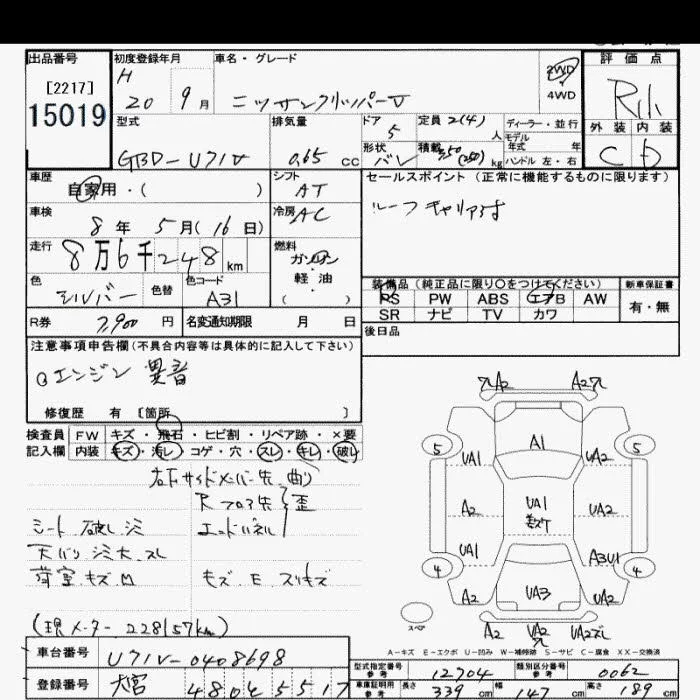 出品番号 初度登録年月 車名・グレード 評価点
[2217] H 2WD
15019 20 9月 ニッサンクリッパーV 4WD
型式 排気量 ドア 定員 2(4)人 ディーラー・並行 外装 内装
5 モデル年式 年式
GBD-U71V 0.65 cc 形状 バン 積載 350(250)kg ハンドル 左・右 C D
車歴 シフト セールスポイント(正常に機能するものに限ります)
自家用・( ) AT
車検 冷房 ルーフキャリア付
8年 5月(16日) AC
走行 燃料
8万6千248km ガソリン
・
軽油
( )
色 色替 色コード 装備品(純正品に限り〇をつけてください) 新車保証書
シルバー A31 PS PW ABS エアB AW 有・無
SR ナビ TV カワ
R券 7,900円 名変通知期限 月 日 後日品
注意事項申告欄(不具合内容等は具体的に記入して下さい)
エンジン 異音
修復歴 有 [箇所 ]
検査員 FW キズ・飛石・ヒビ割・リペア跡・×要
記入欄 内装 キズ・汚レ・コゲ・穴・スレ・キレ・破レ
右F サイドメンバー先 曲り
R フロア先 歪
シート 破レ 汚ミ エンドパネル
天バリ 汚大 スレ
荷室 キズ M キズ. E. スリキズ
(現メーター 228157km)
A2 A2
5 A1 5
UA1 UA2
A2 UA1 UA2
UA1 A3U1
4 4
A2 UA3 A2
スペア
A2 UA2 UA2ズレ
A-キズ E-エクボ U-凹み W-補修跡 S-サビ C-腐食 XX-交換済
車台番号 U71V-0408698
型式指定番号 参考 12704 類別区分番号 参考 0062
登録番号 大宮 480 い 5517
車庫証明用 参考 長さ 339cm 幅 147cm 高さ 189cm